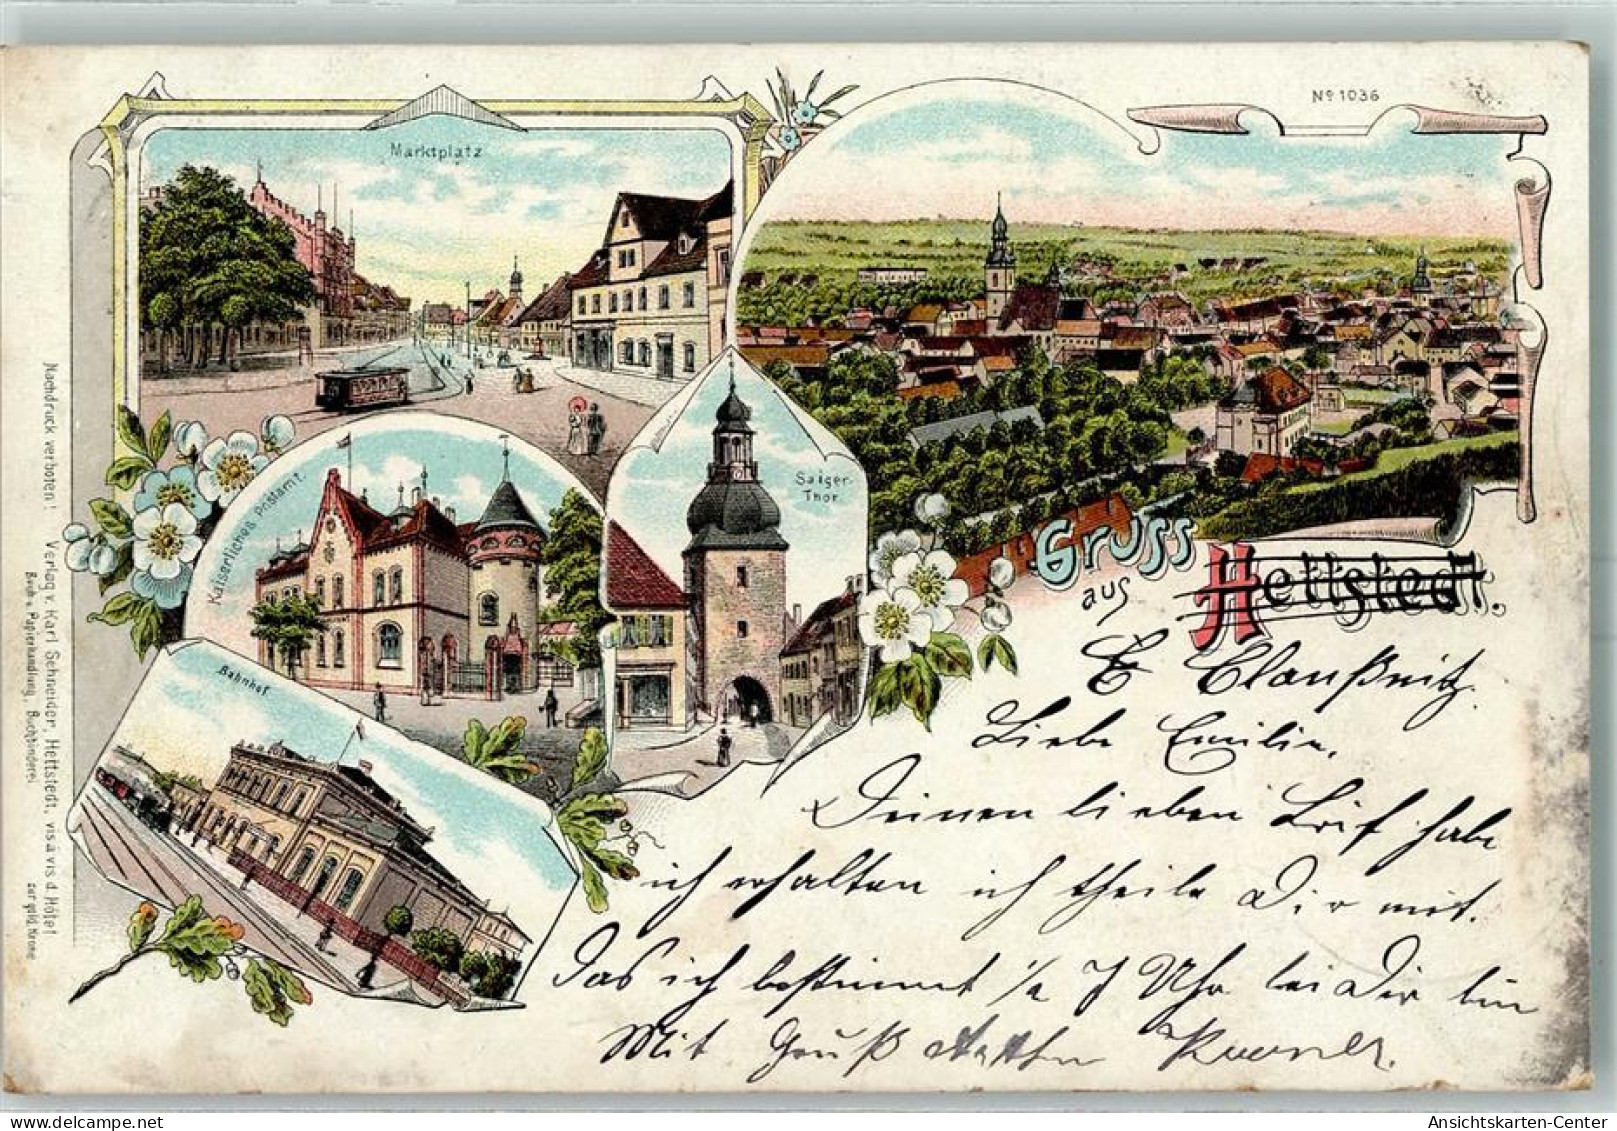 Nº 1036
Marktplatz
Saiger-
Thor.
Kaiserliches Postamt.
Bahnhof
Gruss
aus
Hettstedt.
Claußnitz.
Liebe Emilie,
Deinen lieben Brief habe
ich erhalten ich theile Dir mit.
Das ich bestimmt 1/2 7 Uhr bei Dir bin
Mit Gruß
Nachdruck verboten! Verlag v. Karl Schneider, Hettstedt, vis à vis d. Hôtel
Buch u. Papierhandlung, Buchbinderei zur gold. Krone
Ansichtskarten-Center